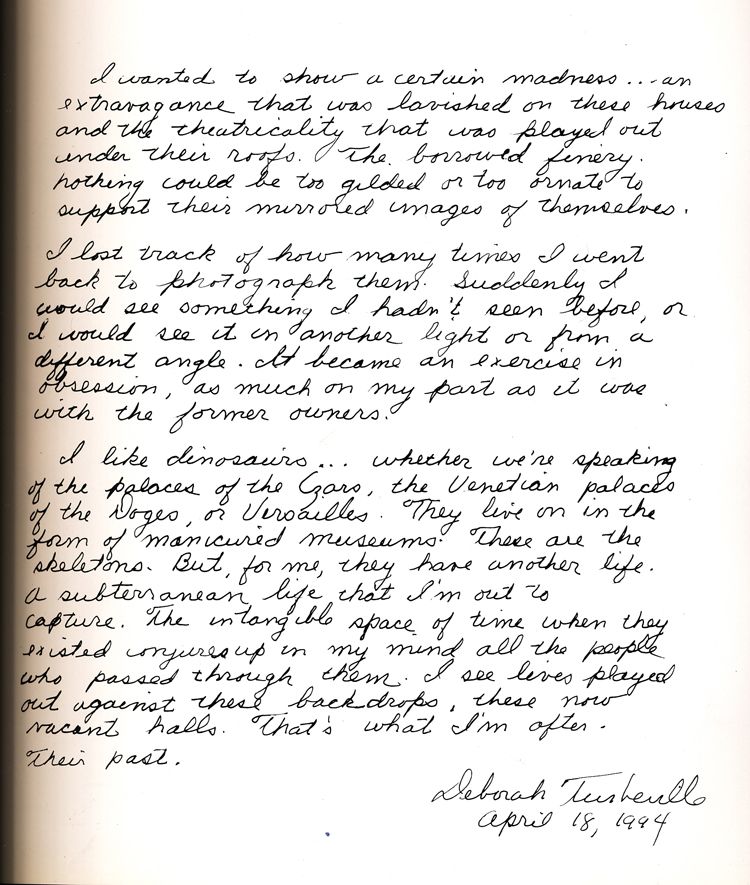 I wanted to show a certain madness... an
extravagance that was lavished on these houses
and the theatricality that was played out
under their roofs. The borrowed finery.
nothing could be too gilded or too ornate to
support their mirrored images of themselves.
I lost track of how many times I went
back to photograph them. Suddenly I
would see something I hadn't seen before, or
I would see it in another light or from a
different angle. It became an exercise in
obsession, as much on my part as it was
with the former owners.
I like dinosaurs... whether we're speaking
of the palaces of the Czars, the Venetian palaces
of the Doges, or Versailles. They live on in the
form of manicured museums. These are the
skeletons. But, for me, they have another life.
A subterranean life that I'm out to
capture. The intangible space of time when they
existed conjures up in my mind all the people
who passed through them. I see lives played
out against these backdrops, these now
vacant halls. That's what I'm after.
Their past.
Deborah Turbeville
April 18, 1994